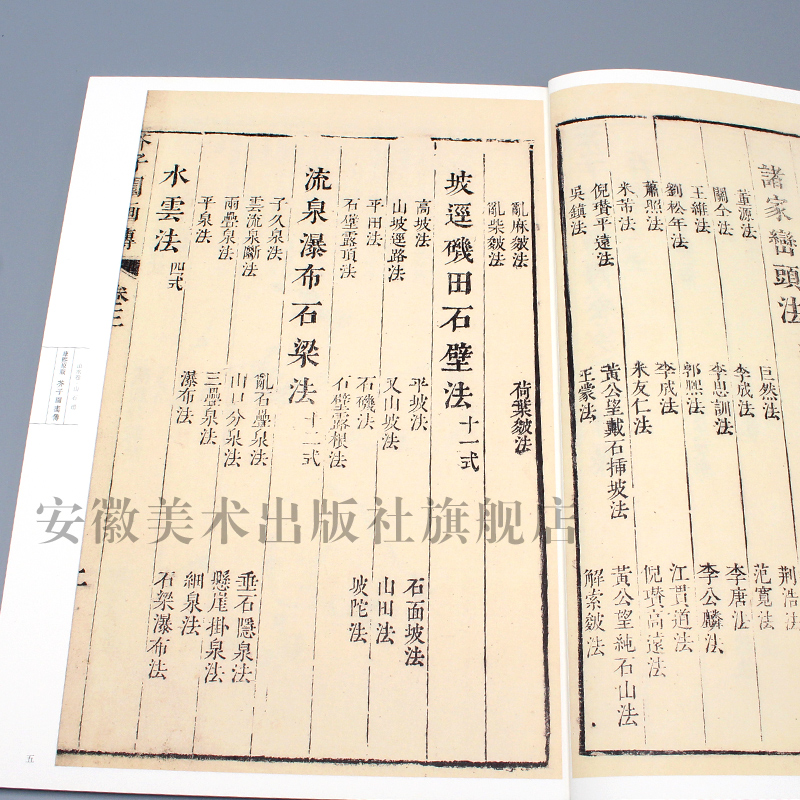 諸家巒頭法
董源法 巨然法 荆浩法
關仝法 李成法 范寬法
王維法 李思訓法 李唐法
劉松年法 郭熙法 李公麟法
蕭照法 李成法 江貫道法
米芾法 米友仁法 倪瓚高遠法
倪瓚平遠法 黃公望戴石插坡法 黃公望純石山法
吳鎮法 王蒙法 解索皴法
亂麻皴法 荷葉皴法
亂柴皴法
坡逕磯田石壁法 十一式
高坡法 平坡法 石面坡法
山坡逕路法 又山坡法 山田法
平田法 石磯法 坡陀法
石壁露頂法 石壁露根法
流泉瀑布石梁法 十二式
子久泉法 亂石疊泉法 垂石隱泉法
雲流泉斷法 山口分泉法 懸崖掛泉法
兩疊泉法 三疊泉法 細泉法
平泉法 瀑布法 石梁瀑布法
水雲法 四式
芥子園畫傳 卷三
芥子園畫傳
五
安徽美术出版社旗舰店